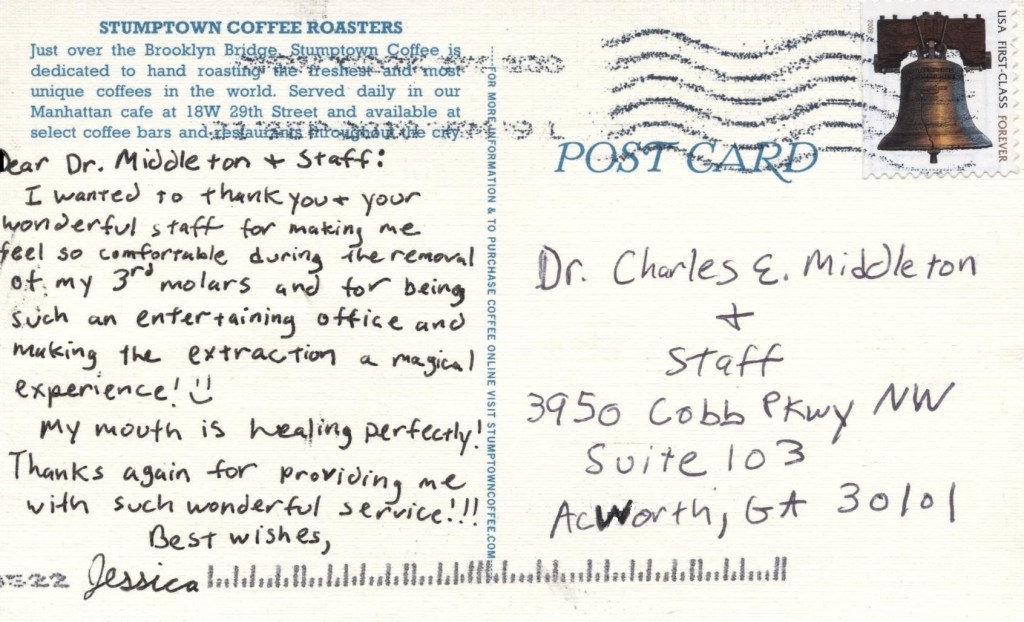 STUMPTOWN COFFEE ROASTERS
Just over the Brooklyn Bridge, Stumptown Coffee is
dedicated to hand roasting the freshest and most
unique coffees in the world. Served daily in our
Manhattan cafe at 18W 29th Street and available at
select coffee bars and restaurants throughout the city
Dear Dr. Middleton + Staff:
I wanted to thank you + your
wonderful staff for making me
feel so comfortable during the removal
of my 3rd molars and for being
such an entertaining office and
making the extraction a magical
experience!
My mouth is healing perfectly!
Thanks again for providing me
with such wonderful service!!!
Best wishes,
Jessica
FOR MORE INFORMATION & TO PURCHASE COFFEE ONLINE VISIT STUMPTOWNCOFFEE.COM
POST CARD
USA FIRST-CLASS FOREVER
Dr. Charles E. Middleton
+
Staff
3950 Cobb Pkwy NW
Suite 103
Acworth, GA 30101